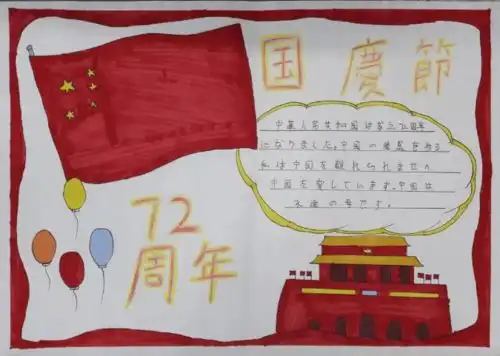 国慶節
中華人民共和国は成立72周年
になりました。中国の
私は中国を離れられません
中国を愛しています。中国は
永遠の母です。
72
周年